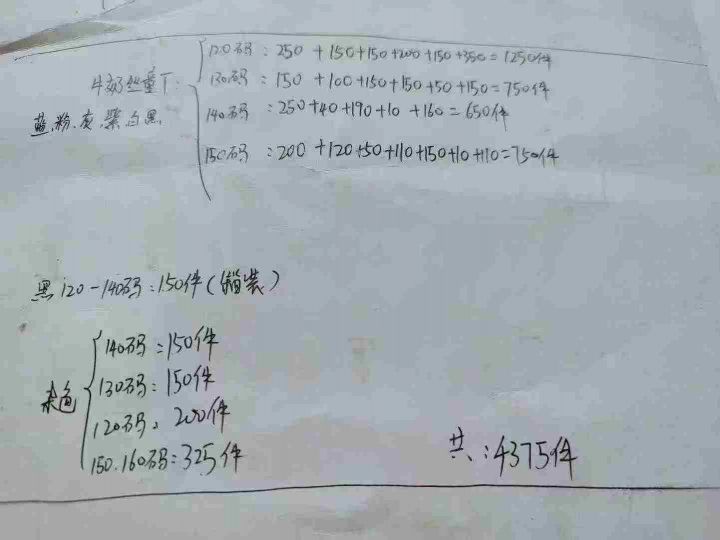 120码：250+150+150+200+150+350=1250件
牛奶丝童T：130码：150+100+150+150+50+150=750件
蓝、粉、灰、紫、白、黑
140码：250+40+190+10+160=650件
150码：200+120+50+110+150+10+110=750件
黑120-140码：150件（箱装）
140码：150件
杂色 130码：150件
120码：200件
150.160码：325件
共：4375件